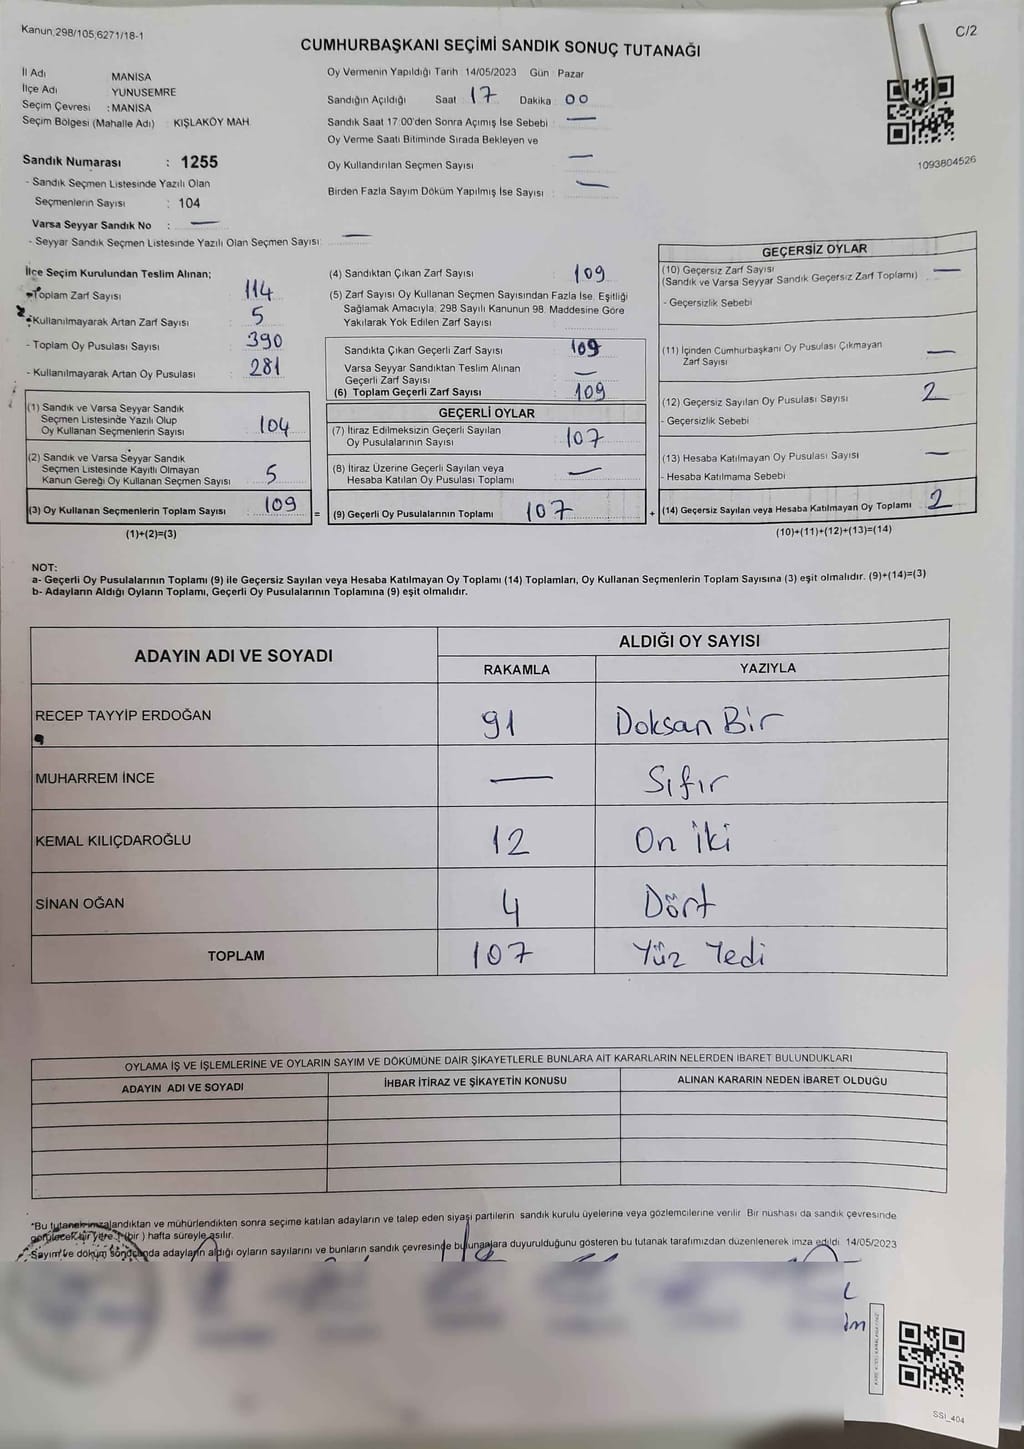 Kanun,298/105,6271/18-1
C/2
CUMHURBAŞKANI SEÇİMİ SANDIK SONUÇ TUTANAĞI
İl Adı MANİSA
İlçe Adı YUNUSEMRE
Seçim Çevresi : MANİSA
Seçim Bölgesi (Mahalle Adı) : KIŞLAKÖY MAH
Sandık Numarası : 1255
- Sandık Seçmen Listesinde Yazılı Olan
Seçmenlerin Sayısı : 104
Varsa Seyyar Sandık No : —
- Seyyar Sandık Seçmen Listesinde Yazılı Olan Seçmen Sayısı: —
Oy Vermenin Yapıldığı Tarih 14/05/2023 Gün : Pazar
Sandığın Açıldığı Saat : 17 Dakika : 00
Sandık Saat 17.00'den Sonra Açımış İse Sebebi : —
Oy Verme Saati Bitiminde Sırada Bekleyen ve
Oy Kullandırılan Seçmen Sayısı : —
Birden Fazla Sayım Döküm Yapılmış İse Sayısı : —
1093804526
İlçe Seçim Kurulundan Teslim Alınan;
- Toplam Zarf Sayısı : 114
- Kullanılmayarak Artan Zarf Sayısı : 5
- Toplam Oy Pusulası Sayısı : 390
- Kullanılmayarak Artan Oy Pusulası : 281
(1) Sandık ve Varsa Seyyar Sandık
Seçmen Listesinde Yazılı Olup
Oy Kullanan Seçmenlerin Sayısı : 104
(2) Sandık ve Varsa Seyyar Sandık
Seçmen Listesinde Kayıtlı Olmayan
Kanun Gereği Oy Kullanan Seçmen Sayısı : 5
(3) Oy Kullanan Seçmenlerin Toplam Sayısı : 109 =
(1)+(2)=(3)
(4) Sandıktan Çıkan Zarf Sayısı : 109
(5) Zarf Sayısı Oy Kullanan Seçmen Sayısından Fazla İse, Eşitliği
Sağlamak Amacıyla, 298 Sayılı Kanunun 98. Maddesine Göre
Yakılarak Yok Edilen Zarf Sayısı :
Sandıkta Çıkan Geçerli Zarf Sayısı : 109
Varsa Seyyar Sandıktan Teslim Alınan
Geçerli Zarf Sayısı : —
(6) Toplam Geçerli Zarf Sayısı : 109
GEÇERLİ OYLAR
(7) İtiraz Edilmeksizin Geçerli Sayılan
Oy Pusulalarının Sayısı : 107
(8) İtiraz Üzerine Geçerli Sayılan veya
Hesaba Katılan Oy Pusulası Toplamı : —
(9) Geçerli Oy Pusulalarının Toplamı : 107 +
GEÇERSİZ OYLAR
(10) Geçersiz Zarf Sayısı —
(Sandık ve Varsa Seyyar Sandık Geçersiz Zarf Toplamı)
- Geçersizlik Sebebi
(11) İçinden Cumhurbaşkanı Oy Pusulası Çıkmayan
Zarf Sayısı —
(12) Geçersiz Sayılan Oy Pusulası Sayısı 2
- Geçersizlik Sebebi
(13) Hesaba Katılmayan Oy Pusulası Sayısı —
- Hesaba Katılmama Sebebi
(14) Geçersiz Sayılan veya Hesaba Katılmayan Oy Toplamı 2
(10)+(11)+(12)+(13)=(14)
NOT:
a- Geçerli Oy Pusulalarının Toplamı (9) ile Geçersiz Sayılan veya Hesaba Katılmayan Oy Toplamı (14) Toplamları, Oy Kullanan Seçmenlerin Toplam Sayısına (3) eşit olmalıdır. (9)+(14)=(3)
b- Adayların Aldığı Oyların Toplamı, Geçerli Oy Pusulalarının Toplamına (9) eşit olmalıdır.
ADAYIN ADI VE SOYADI
ALDIĞI OY SAYISI
RAKAMLA YAZIYLA
RECEP TAYYİP ERDOĞAN 91 Doksan Bir
MUHARREM İNCE — Sıfır
KEMAL KILIÇDAROĞLU 12 On İki
SİNAN OĞAN 4 Dört
TOPLAM 107 Yüz Yedi
OYLAMA İŞ VE İŞLEMLERİNE VE OYLARIN SAYIM VE DÖKÜMÜNE DAİR ŞİKAYETLERLE BUNLARA AİT KARARLARIN NELERDEN İBARET BULUNDUKLARI
ADAYIN ADI VE SOYADI İHBAR İTİRAZ VE ŞİKAYETİN KONUSU ALINAN KARARIN NEDEN İBARET OLDUĞU
*Bu tutanak imzalandıktan ve mühürlendikten sonra seçime katılan adayların ve talep eden siyasi partilerin sandık kurulu üyelerine veya gözlemcilerine verilir. Bir nüshası da sandık çevresinde
görülecek bir yere 1 (bir) hafta süreyle asılır.
-Sayım ve döküm sonucunda adayların aldığı oyların sayılarını ve bunların sandık çevresinde bulunanlara duyurulduğunu gösteren bu tutanak tarafımızdan düzenlenerek imza edildi. 14/05/2023
SSI_404